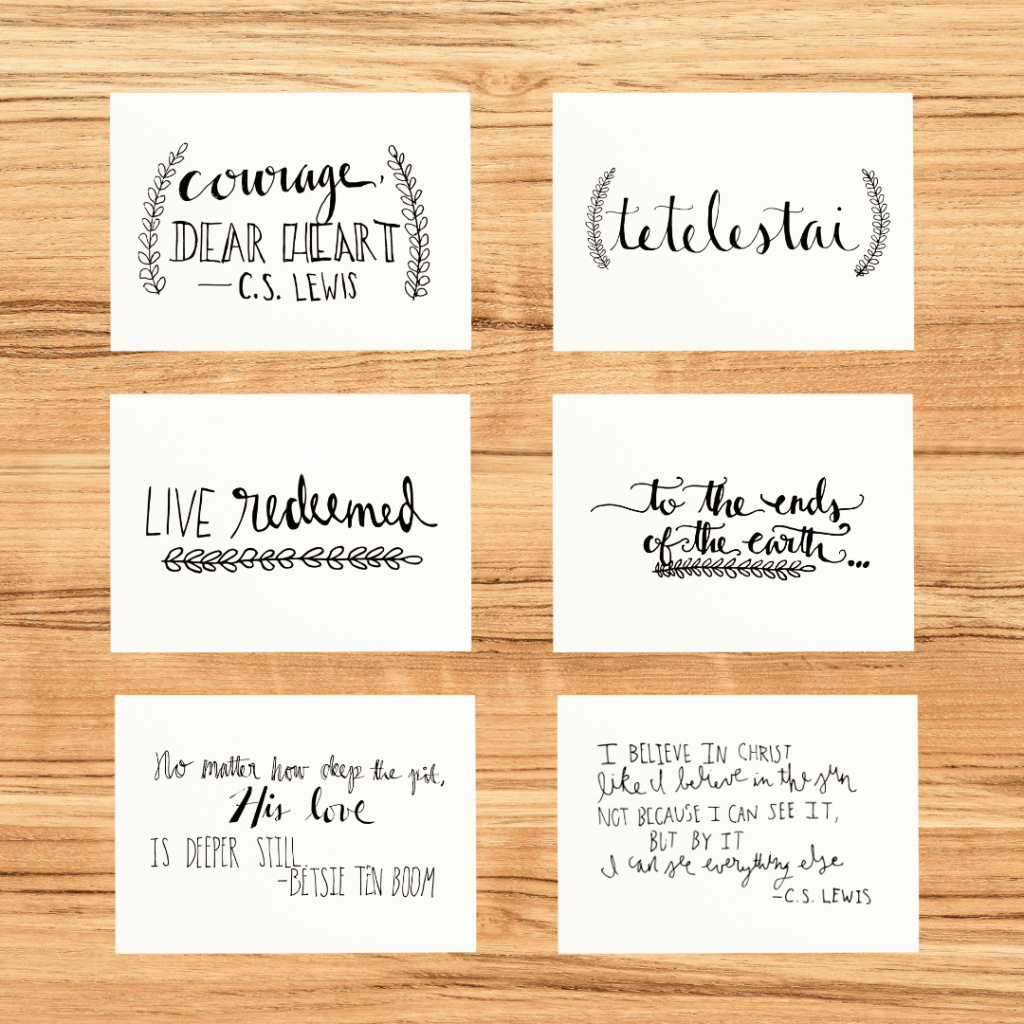 courage,
DEAR HEART
—C.S. LEWIS
tetelestai
LIVE redeemed
to the ends
of the earth...
No matter how deep the pit,
His love
IS DEEPER STILL.
-BETSIE TEN BOOM
I BELIEVE IN CHRIST
like I believe in the sun
NOT BECAUSE I CAN SEE IT,
BUT BY IT
I can see everything else
-C.S. LEWIS